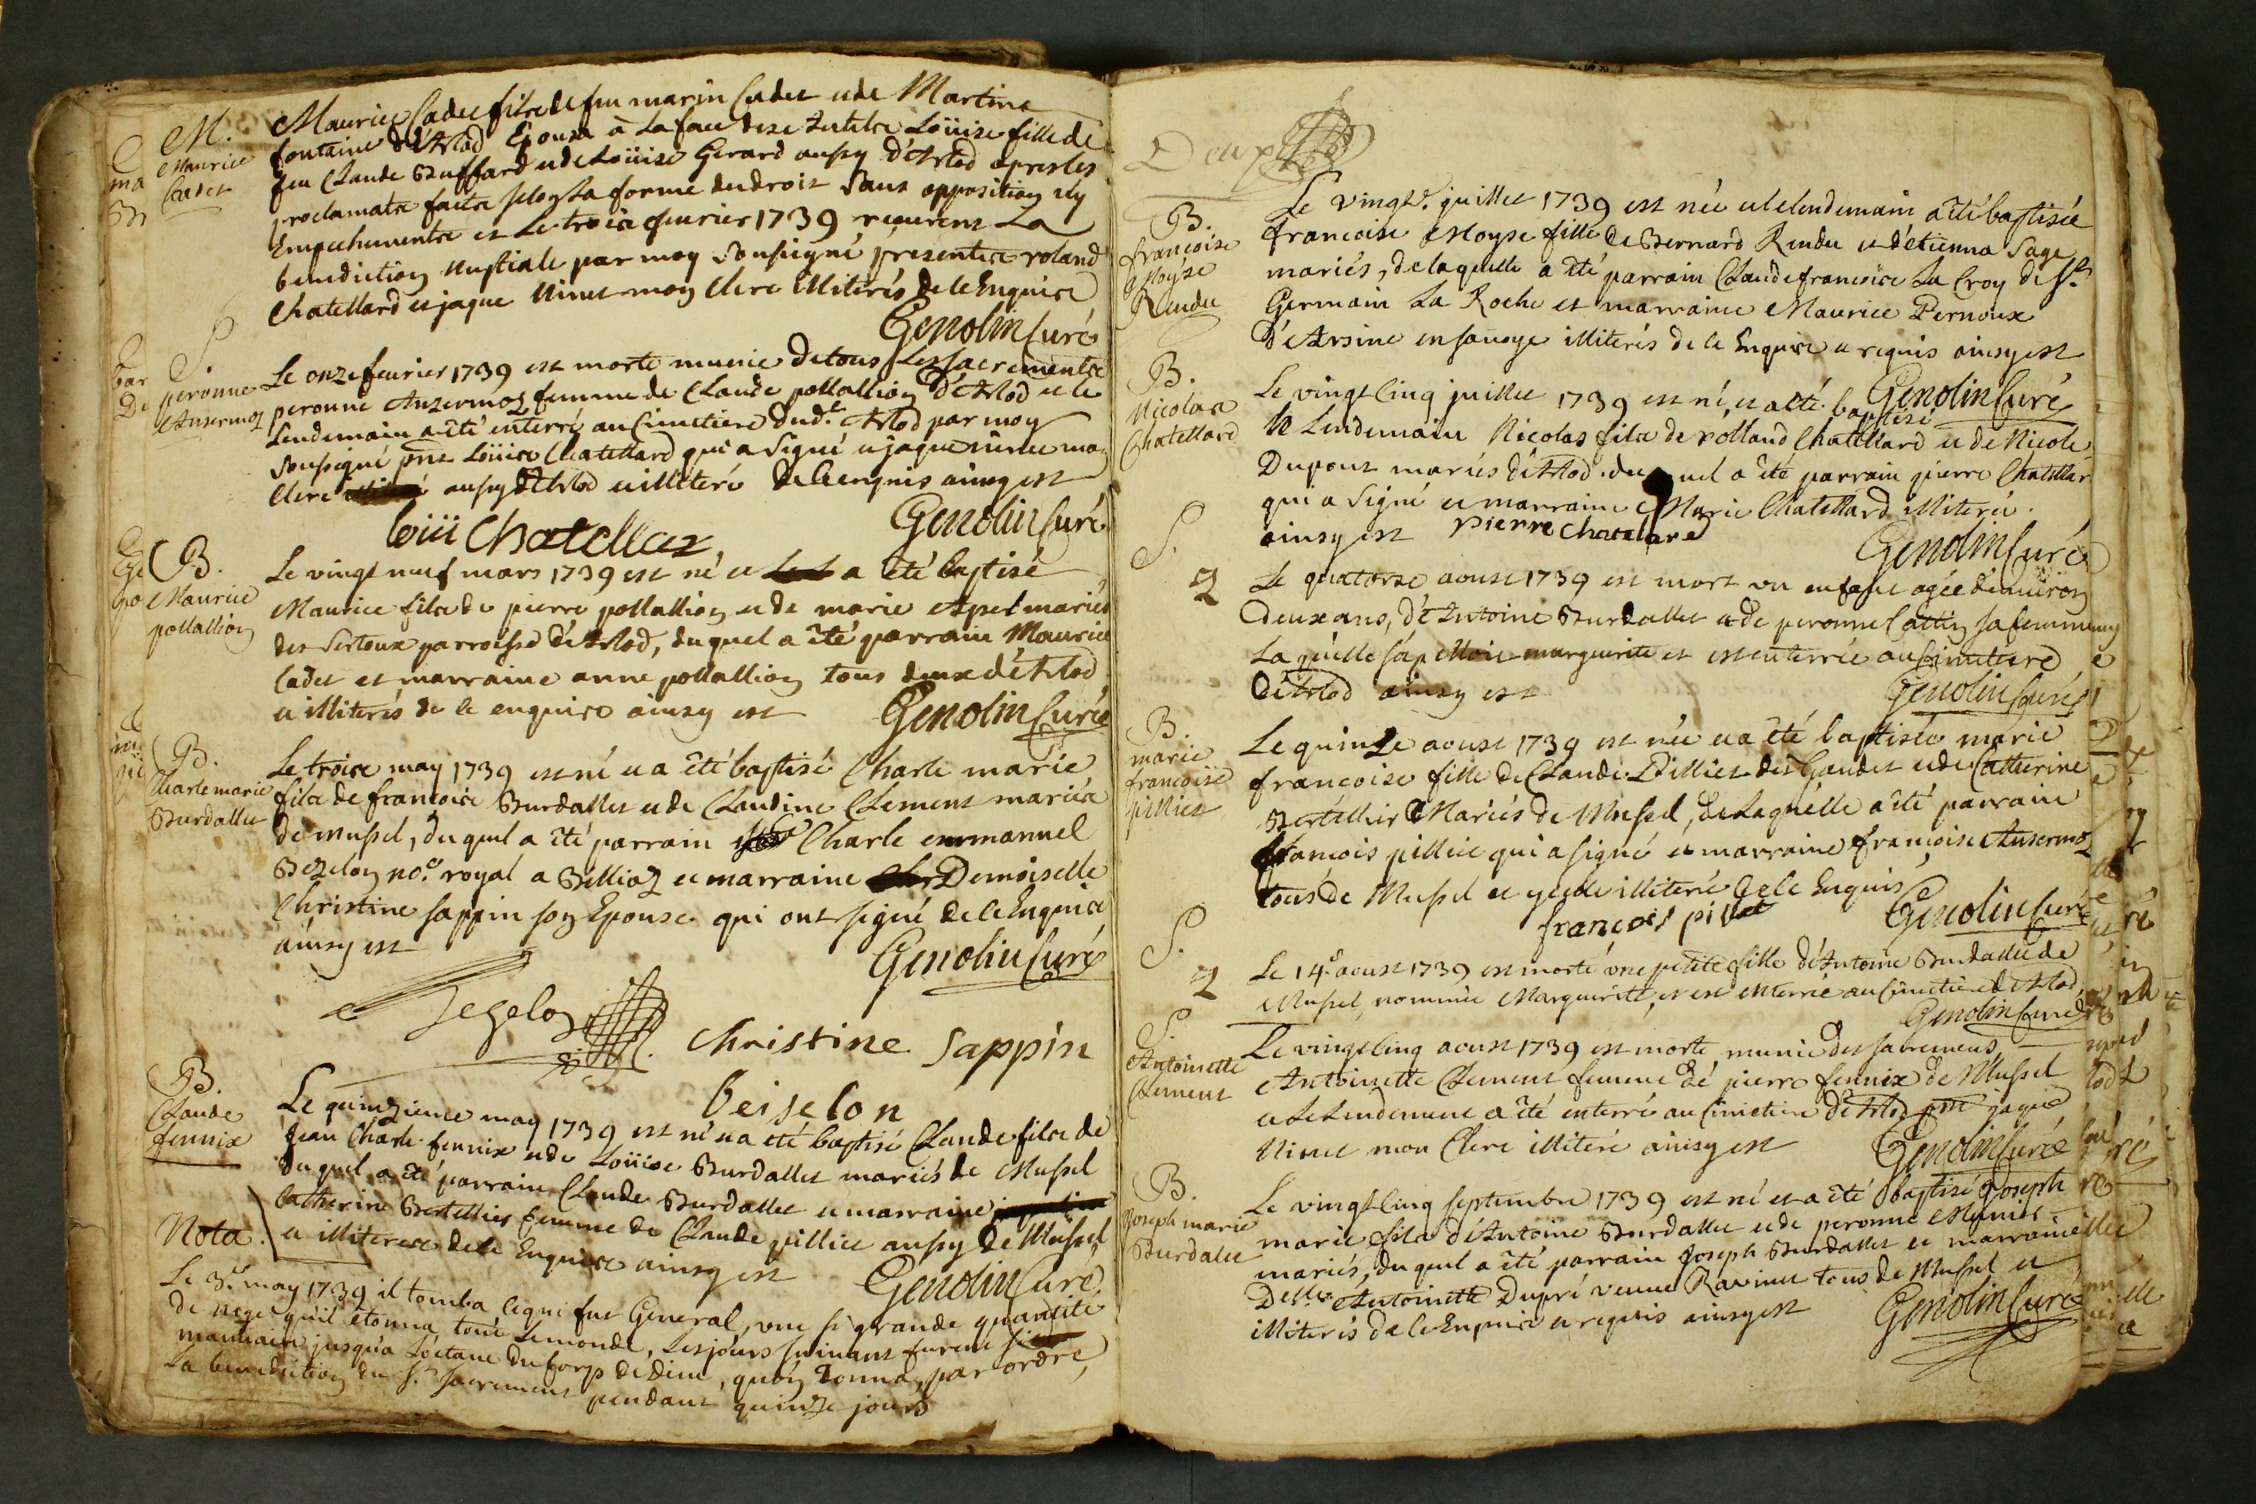 M.
Maurice
Cadet
Maurice Cadet fils de feu marin Cadet et de Martine
fontaine d'Arlod Epousa à la face de
feu Claude Buffard et de Loüise Gerard aussy d'Arlod apres les
proclamats faits selon la forme du droit sans opposition ny
Empechements et Le trois feurier 1739 receurent La
benediction nuptiale par moy soussigné presents roland
Chatellard et jaque Ninet mon Clerc illiterés de ce Enquis
Genolin Curé
S
peronne
Ansermoz
Le onze feurier 1739 est morte munie de tous Les sacrements
peronne Anzermoz femme de Claude poltallion d'Arlod et le
Lendemain a êté enterré au Cimetiere dud.t Arlod par moy
soussigné pnt Loüis Chatellard qui a signé et jaque ninet mon
Clerc aussy d'Arlod et illiteré de ce enquis ainsy est
loüi Chatellar
Genolin Curé
B.
Maurice
poltallion
Le vingt neuf mars 1739 est né et a êté baptisé
Maurice fils de pierre poltallion et de marie mariés
des Sertoux parroisse d'Arlod, duquel a êté parrain Maurice
Cadet et marraine anne poltallion tous deux d'Arlod
et illiterés de ce enquis ainsy est
Genolin Curé
B.
Charle marie
Burdallet
Le trois may 1739 est né et a êté baptisé Charle marie
fils de francois Burdallet et de Claudine Clement mariés
de mussel, duquel a êté parrain Charle emmanuel
Bezelon no.e royal a Billiaz et marraine Demoiselle
Christine sappin son Epouse qui ont signé de ce Enquis
ainsy est
Genolin Curé
Begelon
Christine Sappin
Beiselon
B.
Claude
fennix
Le quinzieme may 1739 est né et a êté baptisé Claude fils de
Jean Charle fennix et de Loüise Burdallet mariés de Mussel
duquel a êté parrain Claude Burdallet et marraine
Catherine Bertellier femme de Claude pilliet aussy de Mussel
et illiteres de ce Enquis ainsy est
Genolin Curé
Nota.
Le 3.e may 1739 il tomba ce qui fut General, une si grande quantité
de nege qu'il étonna tout Lemonde, Les jours suivant furent si
mauvais jusqu'a L'octave du Corps de Dieu, qu'on donna, par ordre,
La benediction du S.t sacrement pendant quinze jours
B.
francoise
Moyse
Rendu
Le vingt.e juillet 1739 est née et le lendemain a êté baptisée
francoise Moyse fille de Bernard Rendu et d'etienna Sage
mariés, de laquelle a êté parrain Claude francois La Croy de S.t
Germain La Roche et marraine Maurice Pernoux
d'Arsine en sauoye illiterés de ce Enquis et requis ainsy est
Genolin Curé
B.
Nicolas
Chatellard
Le vingt Cinq juillet 1739 est né, et a êté baptisé
le Lendemain Nicolas fils de rolland Chatellard et de Nicole
Dupont mariés d'Arlod. duquel a êté parrain pierre Chatellar
qui a signé et marraine Marie Chatellard illiterée.
ainsy est
Pierre Chatelard
Genolin Curé
S.
2
Le quatorse aoust 1739 est mort un enfant agée d'enuiron
deux ans, d'Antoine Burdallet et de peronne Cattin sa femme
La quelle s'apelloit marguerite et est enterrée au Cimetiere
d'Arlod ainsy est
Genolin Curé
B.
marie
francoise
pilliet
Le quinze aoust 1739 est née et a êté baptisée marie
francoise fille de Claude Pilliet des Gaudet et de Catherine
Bertellier Mariés de Mussel, de Laquelle a êté parrain
francois pilliet qui a signé et marraine francoise Ansermoz
tous de Mussel et ycelle illiteré de ce Enquis
françois pillet
Genolin Curé
S.
2
Le 14.e aoust 1739 est morte une petite fille d'Antoine Burdallet de
Mussel, nommée Marguerite, et est enterrée au Cimetiere d'Arlod
Genolin Curé
S.
Antoinette
Clement
Le vingt Cinq aoust 1739 est morte munie des sacremens
Antoinette Clement femme de pierre fennix de Mussel
et Le Lendemain a êté enterré au Cimetiere d'Arlod pnt jaque
Ninet mon Clerc illiteré ainsy est
Genolin Curé
B.
Joseph marie
Burdallet
Le vingt Cinq septembre 1739 est né et a êté baptisé Joseph
marie fils d'Antoine Burdallet et de peronne Munier
mariés, du quel a êté parrain Joseph Burdallet et marraine
Delle. Antoinette Dupré veuue Ravinet tous de Mussel et
illiterés de ce Enquis et requis ainsy est
Genolin Curé